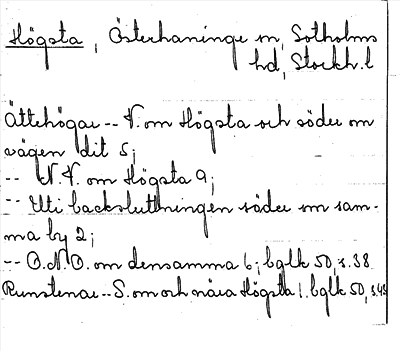 Högsta, Österhaninge sn, Sotholms
hd, Stockh.l
Ättehögar -- V. om Högsta och söder om
vägen dit 5;
-- N.V. om Högsta 9;
-- Uti backsluttningen söder om sam-
ma by 2;
-- O.N.O. om densamma 6; bglk 50, s.38
Runstenar -- S. om och nära Högsta 1. bglk 50, s.43